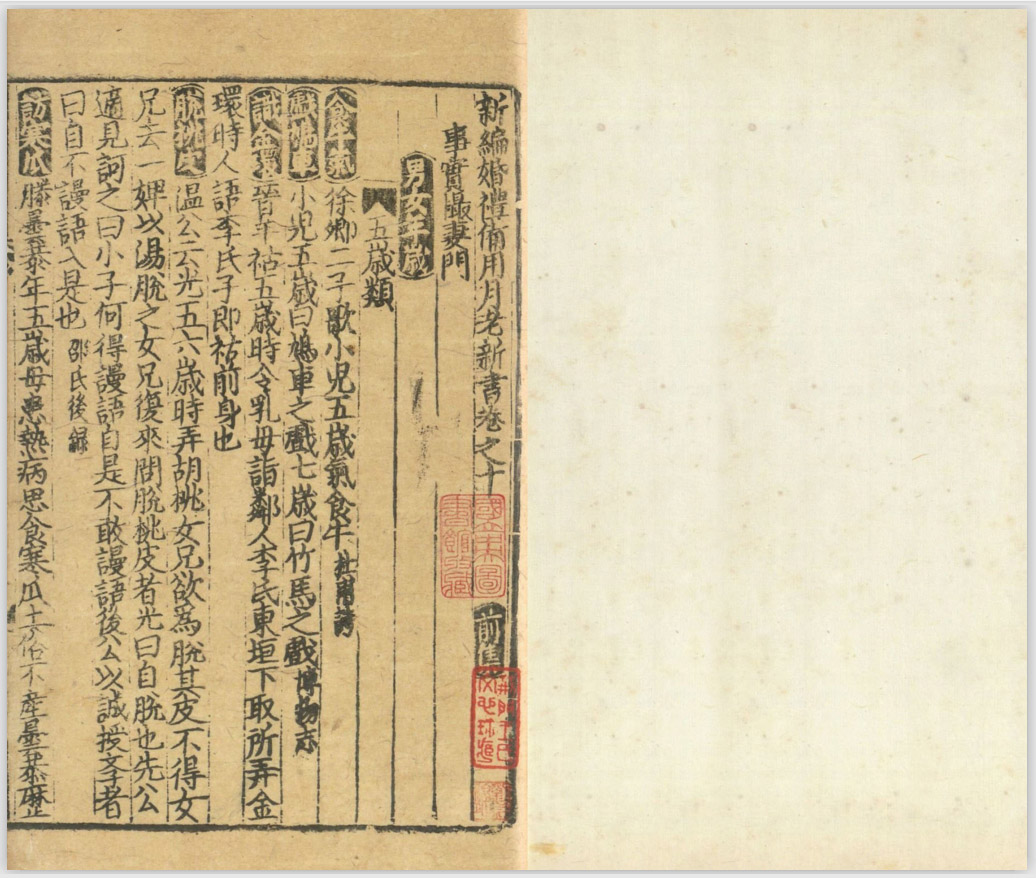 新編婚禮備用月老新書卷之十
前集
事實撮要門
男女年歲
五歲類
食牛氣 徐卿二子歌小児五歳氣食牛 杜甫詩
戯鳩車 小児五歳曰鳩車之戲七歳曰竹馬之戲 博物志
識金環 晉羊祜五歳時令乳母詣鄰人李氏東垣下取所弄金
環時人語李氏子即祜前身也
脫桃皮 温公云光五六歲時弄胡桃女兄欲為脫其皮不得女
兄去一婢以湯脫之女兄復來問脫桃皮者光曰自脫也先公
適見訶之曰小子何得謾語自是不敢謾語後公以誠授文字者
曰自不謾語入是也 邵氏後録
訪寒瓜 滕曇恭年五歲母患熱病思食寒瓜土俗不產曇恭歷
國立中央圖
書館收藏